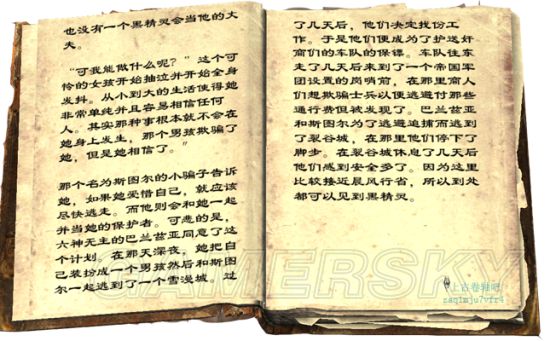 也没有一个黑精灵会当他的大
夫。
“可我能做什么呢？”这个可
怜的女孩开始抽泣并开始全身
发抖。从小到大的生活使得她
非常单纯并且容易相信任何
人。其实那种事根本就不会在
她身上发生，那个男孩欺骗了
她，但是她相信了。”
那个名为斯图尔的小骗子告诉
她，如果她爱惜自己，就应该
尽快逃走。而他则会和她一起
并当她的保护者。可悲的是，
六神无主的巴兰兹亚同意了这
个计划。在那天深夜，她把自
己装扮成一个男孩然后和斯图
尔一起逃到了一个雪漫城，过
了几天后，他们决定找份工
作。于是他们便成为了护送奸
商们的车队的保镖。车队往东
走了几天后来到了一个帝国军
团设置的岗哨前，在那里商人
们想欺骗士兵以便逃避付那些
通行费但被发现了。巴兰兹亚
和斯图尔为了逃避追捕而逃到
了裂谷城，在那里他们停下了
脚步。在裂谷城休息了几天后
他们感到安全多了。因为这里
比较接近晨风行省，所以到处
都可以见到黑精灵。
GAMERSKY
上古卷轴吧
zaq1mju7vfr4